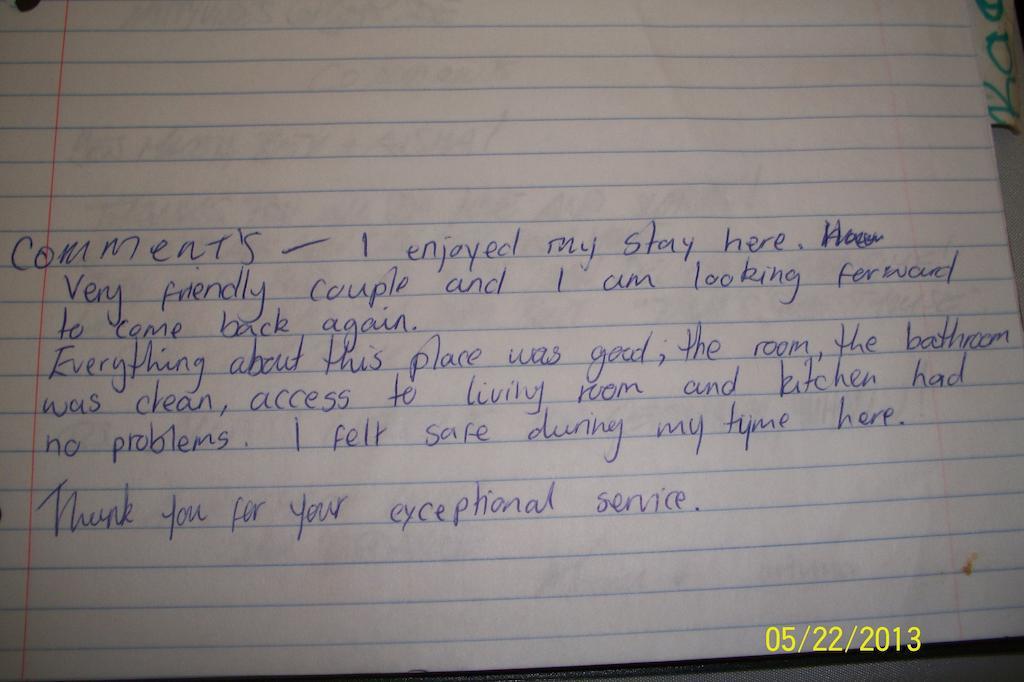 Comments — I enjoyed my stay here.
Very friendly couple and I am looking forward
to come back again.
Everything about this place was good; the room, the bathroom
was clean, access to living room and kitchen had
no problems. I felt safe during my tyme here.
Thank you for your exceptional service.
05/22/2013